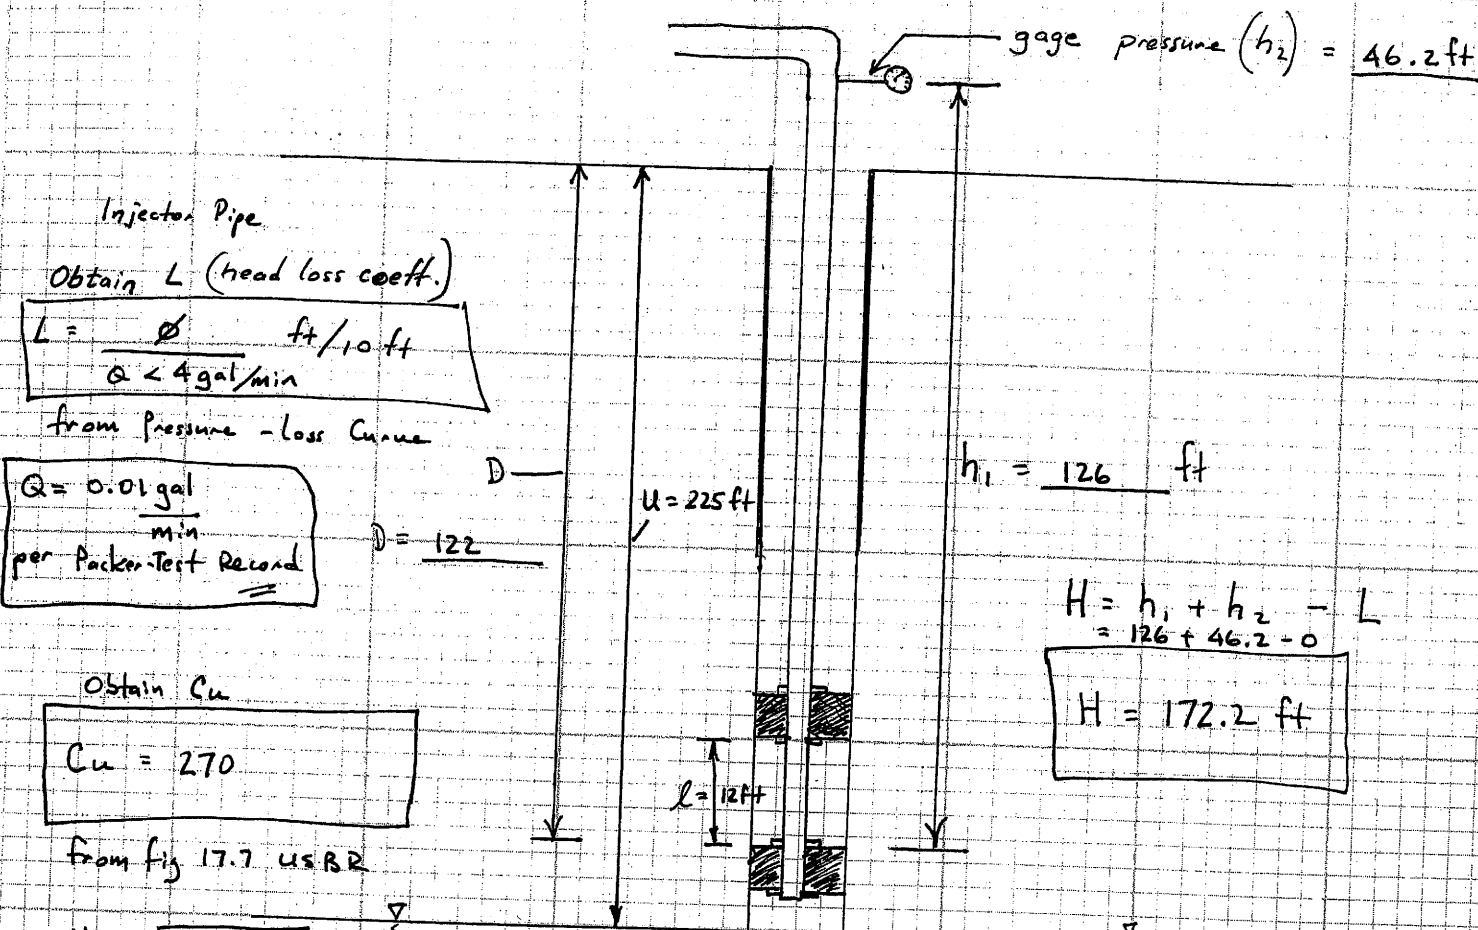 gage pressure (h₂) = 46.2 ft
Injector Pipe
Obtain L (head loss coeff.)
L = ∅ ft/10 ft
Q < 4 gal/min
from Pressure - Loss Curve
Q = 0.01 gal
min
per Packer-Test Record
D
D = 122
U = 225 ft
h₁ = 126 ft
H = h₁ + h₂ - L
= 126 + 46.2 - 0
H = 172.2 ft
Obtain Cu
Cu = 270
from fig 17.7 USBR
l = 12ft